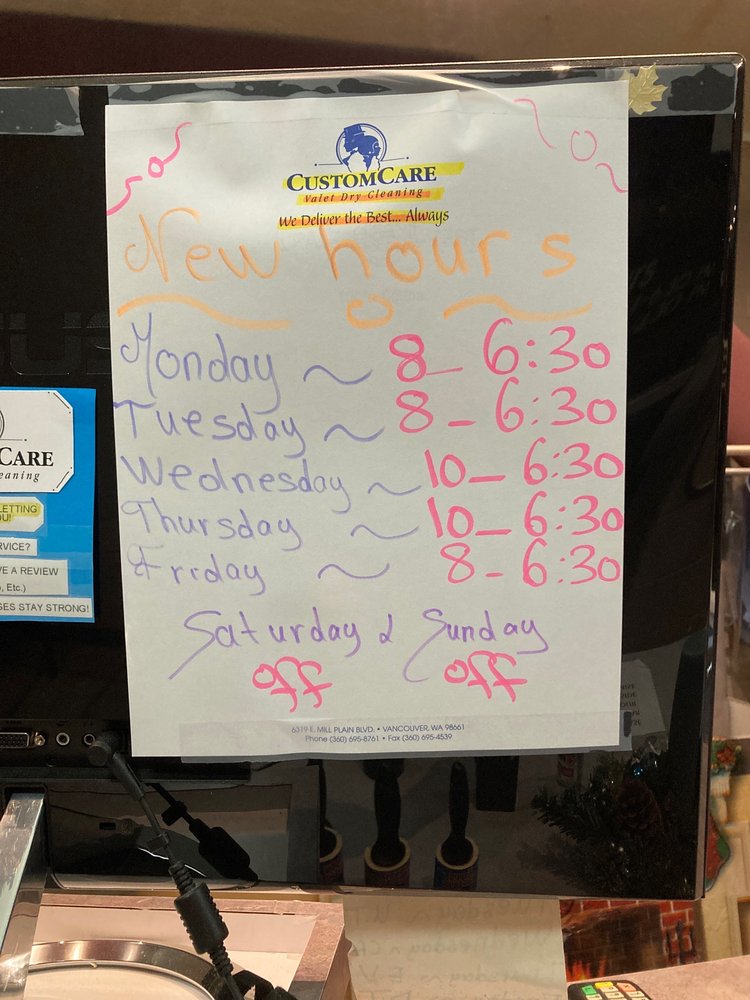 CUSTOMCARE
Valet Dry Cleaning
We Deliver the Best... Always
New hours
Monday ~ 8 - 6:30
Tuesday ~ 8 - 6:30
Wednesday ~ 10 - 6:30
Thursday ~ 10 - 6:30
Friday ~ 8 - 6:30
Saturday & Sunday
off off
6319 E. MILL PLAIN BLVD. • VANCOUVER, WA 98661
Phone (360) 695-8761 • Fax (360) 695-4539
CARE
eaning
LETTING
OU!
RVICE?
VE A REVIEW
, Etc.)
SES STAY STRONG!